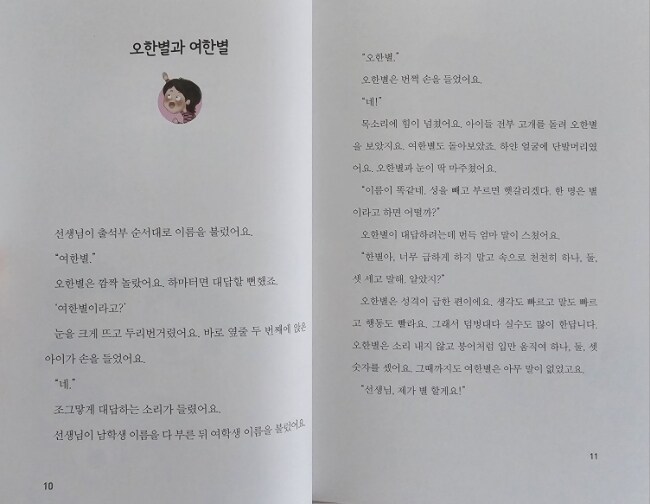 오한별과 여한별
선생님이 출석부 순서대로 이름을 불렀어요.
“여한별.”
오한별은 깜짝 놀랐어요. 하마터면 대답할 뻔했죠.
‘여한별이라고?’
눈을 크게 뜨고 두리번거렸어요. 바로 옆줄 두 번째에 앉은
아이가 손을 들었어요.
“네.”
조그맣게 대답하는 소리가 들렸어요.
선생님이 남학생 이름을 다 부른 뒤 여학생 이름을 불렀어요.
10
“오한별.”
오한별은 번쩍 손을 들었어요.
“네!”
목소리에 힘이 넘쳤어요. 아이들 전부 고개를 돌려 오한별
을 보았지요. 여한별도 돌아보았죠. 하얀 얼굴에 단발머리였
어요. 오한별과 눈이 딱 마주쳤어요.
“이름이 똑같네. 성을 빼고 부르면 헷갈리겠다. 한 명은 별
이라고 하면 어떨까?”
오한별이 대답하려는데 문득 엄마 말이 스쳤어요.
“한별아, 너무 급하게 하지 말고 속으로 천천히 하나, 둘,
셋 세고 말해. 알았지?”
오한별은 성격이 급한 편이에요. 생각도 빠르고 말도 빠르
고 행동도 빨라요. 그래서 덤벙대다 실수도 많이 한답니다.
오한별은 소리 내지 않고 붕어처럼 입만 움직여 하나, 둘, 셋
숫자를 셌어요. 그때까지도 여한별은 아무 말이 없었고요.
“선생님, 제가 별 할게요!”
11